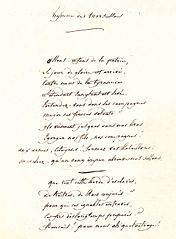 hymne des marseillois
allons enfans de la patrie,
le jour de gloire est arrivé.
contre nous de la tyrannie
l'étendart sanglant est levé.
entendez-vous dans les campagnes
mugir ces féroces soldats ?
ils viennent jusques dans vos bras
égorger vos fils, vos compagnes !
aux armes, citoyens ! formez vos bataillons :
marchez, qu'un sang impur abreuve nos sillons.
que veut cette horde d'esclaves,
de traîtres, de Rois conjurés
pour qui ces ignobles entraves,
ces fers dès longtemps préparés
français ! pour nous ah quel outrage !